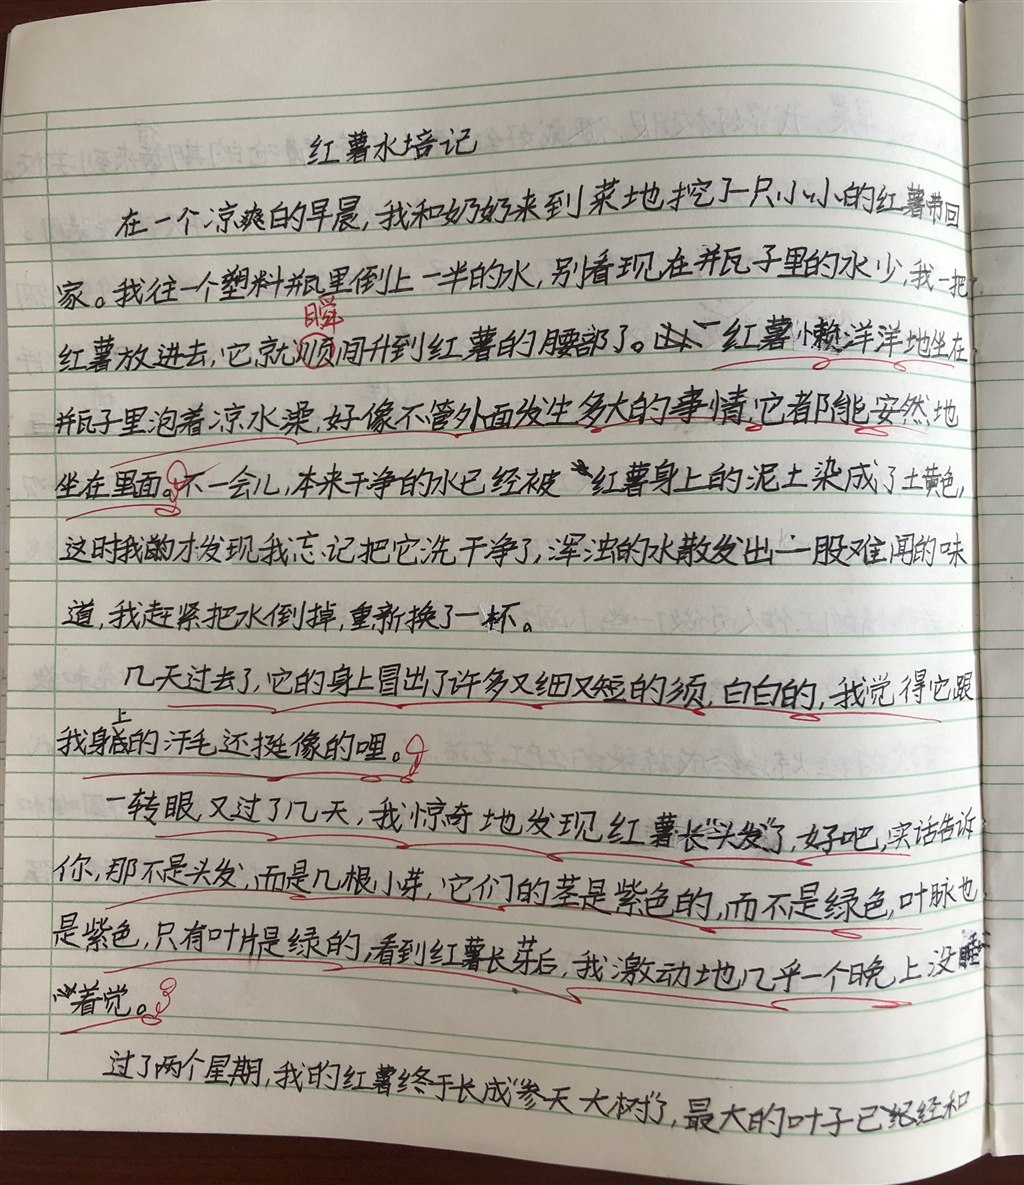 红薯水培记
在一个凉爽的早晨,我和奶奶来到菜地挖了一只小小的红薯带回
家。我往一个塑料瓶里倒上一半的水,别看现在瓶子里的水少,我一把
瞬
红薯放进去,它就顺间升到红薯的腰部了。红薯懒洋洋地坐在
瓶子里泡着凉水澡,好像不管外面发生多大的事情,它都能安然地
坐在里面。不一会儿,本来干净的水已经被红薯身上的泥土染成了土黄色,
这时我才发现我忘记把它洗干净了,浑浊的水散发出一股难闻的味
道,我赶紧把水倒掉,重新换了一杯。
几天过去了,它的身上冒出了许多又细又短的须,白白的,我觉得它跟
我身上的汗毛还挺像的哩。
一转眼,又过了几天,我惊奇地发现红薯长“头发”了,好吧,实话告诉
你,那不是头发,而是几根小芽,它们的茎是紫色的,而不是绿色,叶脉也
是紫色,只有叶片是绿的,看到红薯长芽后,我激动地几乎一个晚上没睡
着觉。
过了两个星期,我的红薯终于长成“参天大树”了,最大的叶子已经和